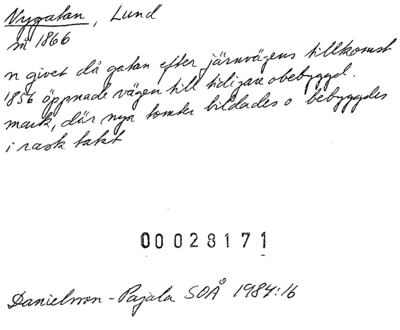 Nygatan, Lund
ni 1866
n givet då gatan efter järnvägens tillkomst
1856 öppnade vägen till tidigare obebyggd
mark, där nya tomter bildades o bebyggdes
i rask takt
00028171
Danielsson-Pajala SOÅ 1984:16